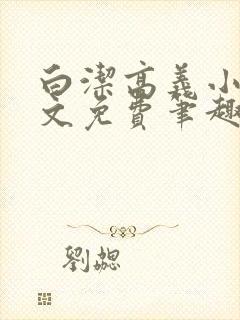 白潔高義小
文免費筆趣
劉勰